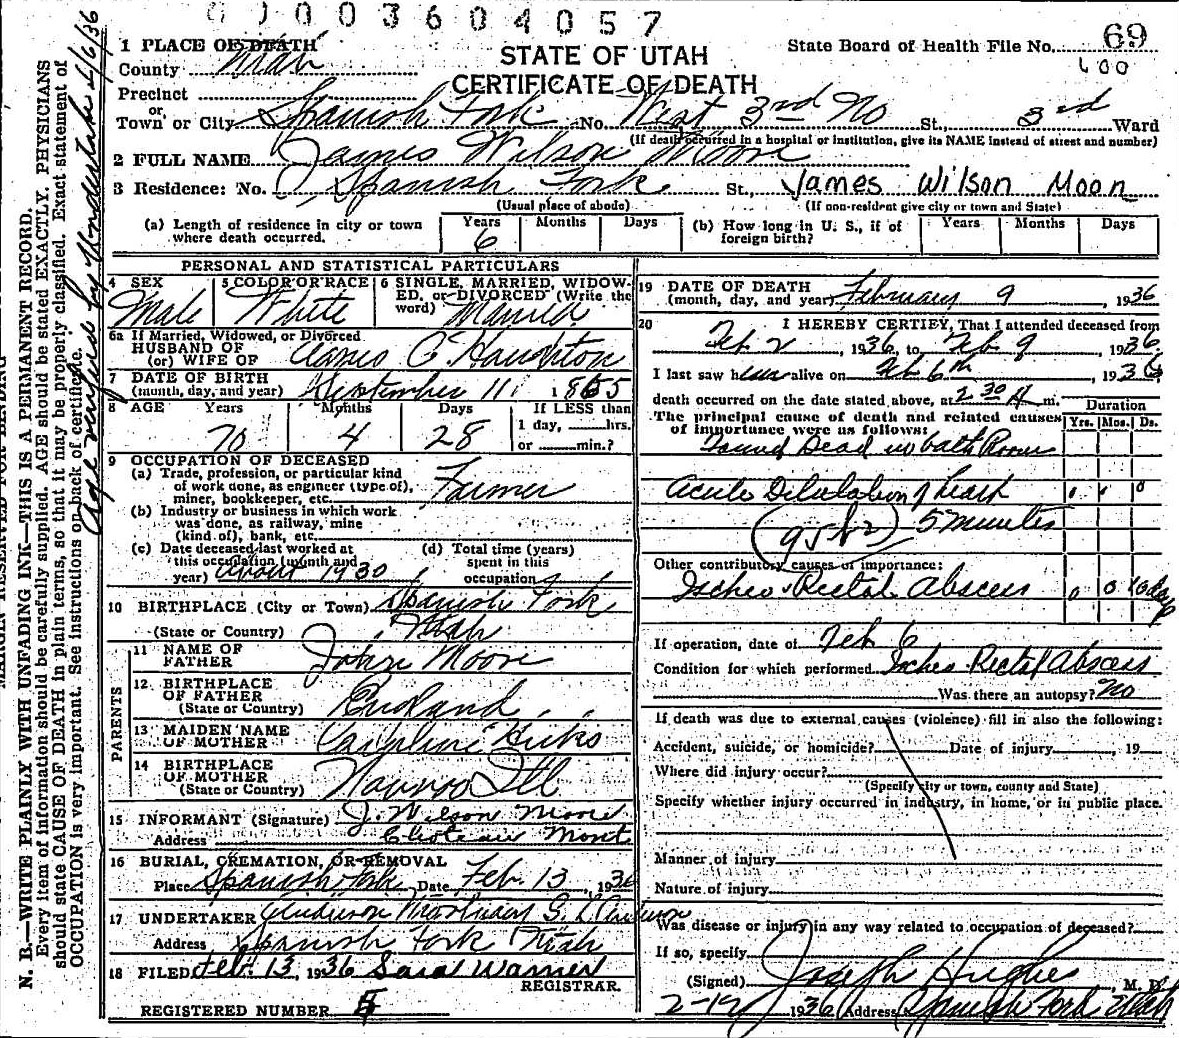 003604057
1 PLACE OF DEATH
STATE OF UTAH
CERTIFICATE OF DEATH
State Board of Health File No. 69
600
County Utah
Precinct
or
Town or City Spanish Fork No. West 3rd No St., 3rd Ward
(If death occurred in a hospital or institution, give its NAME instead of street and number)
2 FULL NAME James Wilson Moore
3 Residence: No. Spanish Fork St., James Wilson Moon
(Usual place of abode) (If non-resident give city or town and State)
(a) Length of residence in city or town where death occurred. Years 6 Months Days
(b) How long in U. S., if of foreign birth? Years Months Days
PERSONAL AND STATISTICAL PARTICULARS
4 SEX Male
5 COLOR OR RACE White
6 SINGLE, MARRIED, WIDOWED, or DIVORCED (Write the word) Married
6a If Married, Widowed, or Divorced
HUSBAND OF
(or) WIFE OF C Haughton
7 DATE OF BIRTH
(month, day, and year) September 11 1865
8 AGE Years 70 Months 4 Days 28
If LESS than
1 day, hrs.
or min.?
9 OCCUPATION OF DECEASED
(a) Trade, profession, or particular kind
of work done, as engineer (type of),
miner, bookkeeper, etc. Farmer
(b) Industry or business in which work
was done, as railway, mine
(kind of), bank, etc.
(c) Date deceased last worked at
this occupation (month and
year) about 1930
(d) Total time (years)
spent in this
occupation
10 BIRTHPLACE (City or Town) Spanish Fork
(State or Country) Utah
PARENTS
11 NAME OF
FATHER John Moore
12 BIRTHPLACE
OF FATHER
(State or Country) England
13 MAIDEN NAME
OF MOTHER Caroline Hicks
14 BIRTHPLACE
OF MOTHER
(State or Country) Nauvoo Ill
15 INFORMANT (Signature) J. Wilson Moore
Address Choteau Mont
16 BURIAL, CREMATION, OR REMOVAL
Place Spanish Fork Date Feb. 13, 1936
17 UNDERTAKER Anderson Mortuary
Address Spanish Fork Utah
18 FILED Feb. 13, 1936 Sara Warner
REGISTRAR.
REGISTERED NUMBER
19 DATE OF DEATH
(month, day, and year) February 9, 1936
20 I HEREBY CERTIFY, That I attended deceased from
Feb 2, 1936, to Feb 9, 1936
I last saw him alive on Feb 6th, 1936
death occurred on the date stated above, at 2 30 A m.
The principal cause of death and related causes
of importance were as follows:
Duration
Yrs. Mos. Ds.
Found Dead in bath Room
Acute Dilatation of heart 0
5 minutes
(95b2)
Other contributory causes of importance:
Ischeo Rectal Abscess 0 0 10 days
If operation, date of Feb 6
Condition for which performed Ischeo Rectal Abscess
Was there an autopsy? No
If death was due to external causes (violence) fill in also the following:
Accident, suicide, or homicide? Date of injury , 19
Where did injury occur?
(Specify city or town, county and State)
Specify whether injury occurred in industry, in home, or in public place.
Manner of injury
Nature of injury
Was disease or injury in any way related to occupation of deceased?
If so, specify
(Signed) Joseph Hughes, M. D.
1936 Address Spanish Fork Utah
N. B.—WRITE PLAINLY WITH UNFADING INK—THIS IS A PERMANENT RECORD.
Every item of information should be carefully supplied. AGE should be stated EXACTLY. PHYSICIANS
should state CAUSE OF DEATH in plain terms, so that it may be properly classified. Exact statement of
OCCUPATION is very important. See instructions on back of certificate.
Age verified by Undertaker 4/6/36
MARGIN RESERVED FOR BINDING